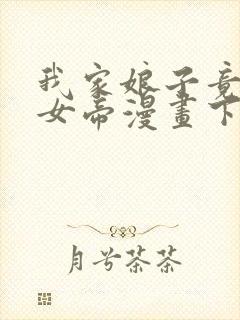 我家娘子竟
女帝漫畫下
月兮茶茶